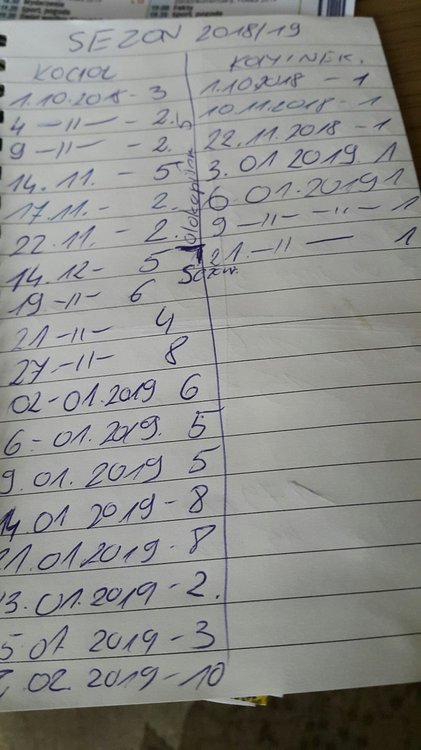 SEZON 2018/19
KOCIOŁ
1.10.2018 - 3
4 -॥- - 2.
9 -॥- - 2.
14.11. - 5
17.11. - 2.
22.11. - 2.
14.12 - 5
19 -॥- 6
21 -॥- 4
27 -॥- 8
02-01.2019 6
6-01.2019. 5
9.01.2019 5
14.01 2019 - 8
21.01.2019 - 8
3.01.2019 - 2.
5 01 2019 - 3
02 2019 - 10
KOMINEK.
1.10.2018 - 1
10.11.2018 - 1
22.11.2018 - 1
3.01 2019 1
6.01.2019 1
9 -॥- -॥- 1
21.-॥- 1